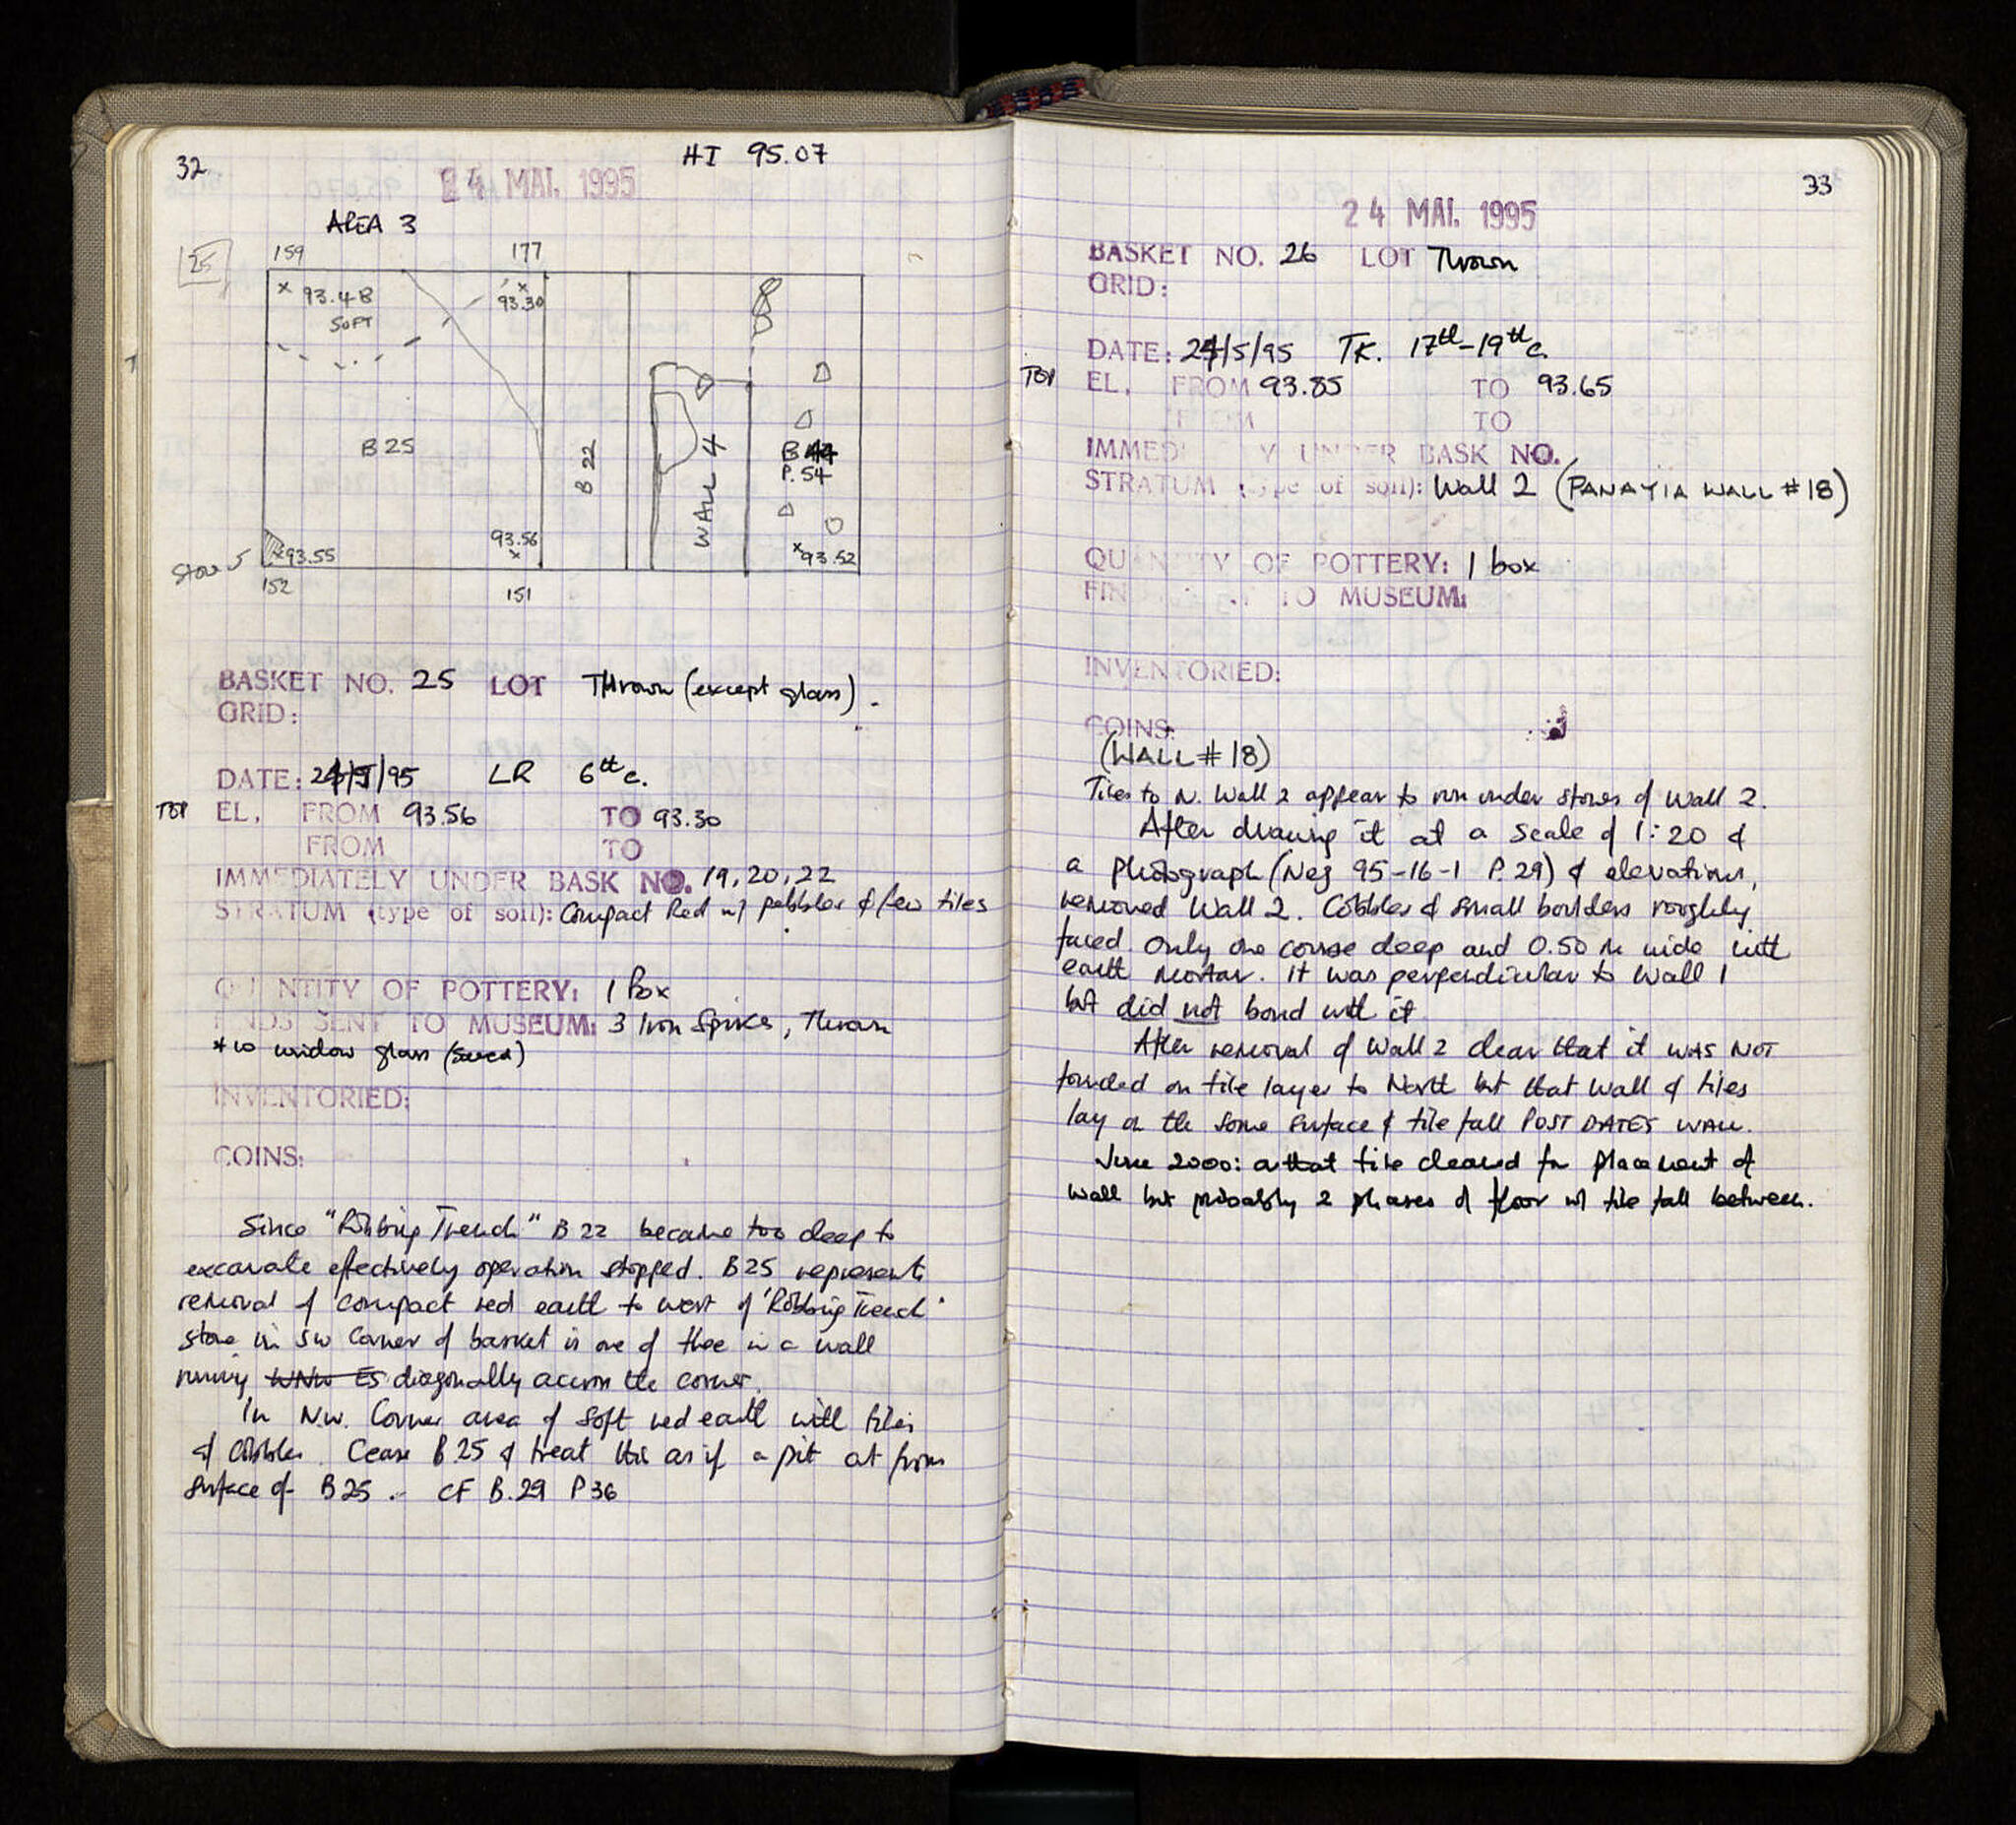 32
HI 95.07
24 MAI. 1995
AREA 3
25
159
177
x 93.48
SOFT
x
93.30
B 25
B 22
WALL 4
B 44
P. 54
93.56
x
x 93.55
x 93.52
Stone
152
151
BASKET NO. 25 LOT Thrown (except glass).
GRID:
DATE: 24/5/95 LR 6th c.
TOP EL. FROM 93.56 TO 93.30
FROM TO
IMMEDIATELY UNDER BASK NO. 19, 20, 22
STRATUM (type of soil): Compact Red w/ pebbles & few tiles
QUANTITY OF POTTERY: 1 Box
FINDS SENT TO MUSEUM: 3 Iron Spikes, Thrown
window glass (saved)
INVENTORIED:
COINS:
Since "Robbing Trench" B 22 became too deep to
excavate effectively operation stopped. B25 represents
removal of compact red earth to west of 'Robbing Trench'
stone in SW Corner of basket is one of three in a wall
running WNW ES diagonally across the corner.
In N.W. Corner area of soft red earth with tiles
& cobbles. Cease B 25 & treat this as if a pit at from
surface of B25. - CF B.29 P36
33
24 MAI. 1995
BASKET NO. 26 LOT Thrown
GRID:
DATE: 24/5/95 TK. 17th-19th c.
TOP EL. FROM 93.85 TO 93.65
FROM TO
IMMEDIATELY UNDER BASK NO.
STRATUM (type of soil): Wall 2 (PANAYIA WALL #18)
QUANTITY OF POTTERY: 1 box
FINDS SENT TO MUSEUM:
INVENTORIED:
COINS:
(WALL # 18)
Tiles to N. Wall 2 appear to run under stones of Wall 2.
After drawing it at a scale of 1:20 &
a photograph (Neg 95-16-1 P. 29) & elevations,
removed Wall 2. Cobbles & small boulders roughly
faced. Only one course deep and 0.50 m wide with
earth mortar. It was perpendicular to Wall 1
but did not bond with it
After removal of Wall 2 clear that it WAS NOT
founded on tile layer to North but that wall & tiles
lay on the same surface & tile fall POST DATES WALL.
June 2000: that tile cleared for placement of
wall but probably 2 phases of floor w/ tile fall between.